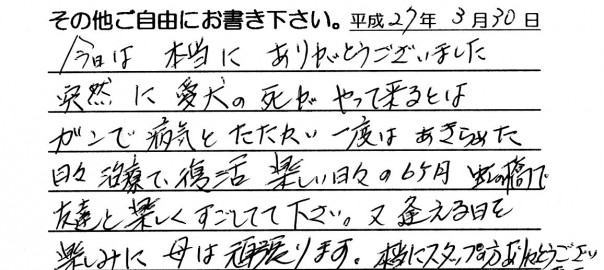 その他ご自由にお書き下さい。平成27年 3月30日
今日は 本当に ありがとうございました
突然 に 愛犬の 死が やって来るとは
ガンで 病気と たたかい 一度は あきらめた
日々 治療で、復活 楽しい日々の6ヶ月 虹の橋で
友達と 楽しく すごしてて下さい。又 逢える日を
楽しみに 母は 頑張ります。本当にスタッフの方ありがとうござい